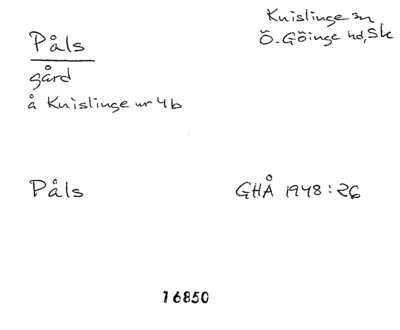 Knislinge sn
Ö-Göinge hd, Sk
Påls
gård
å Knislinge nr 4b
Påls
GHÅ 1948:26
16850